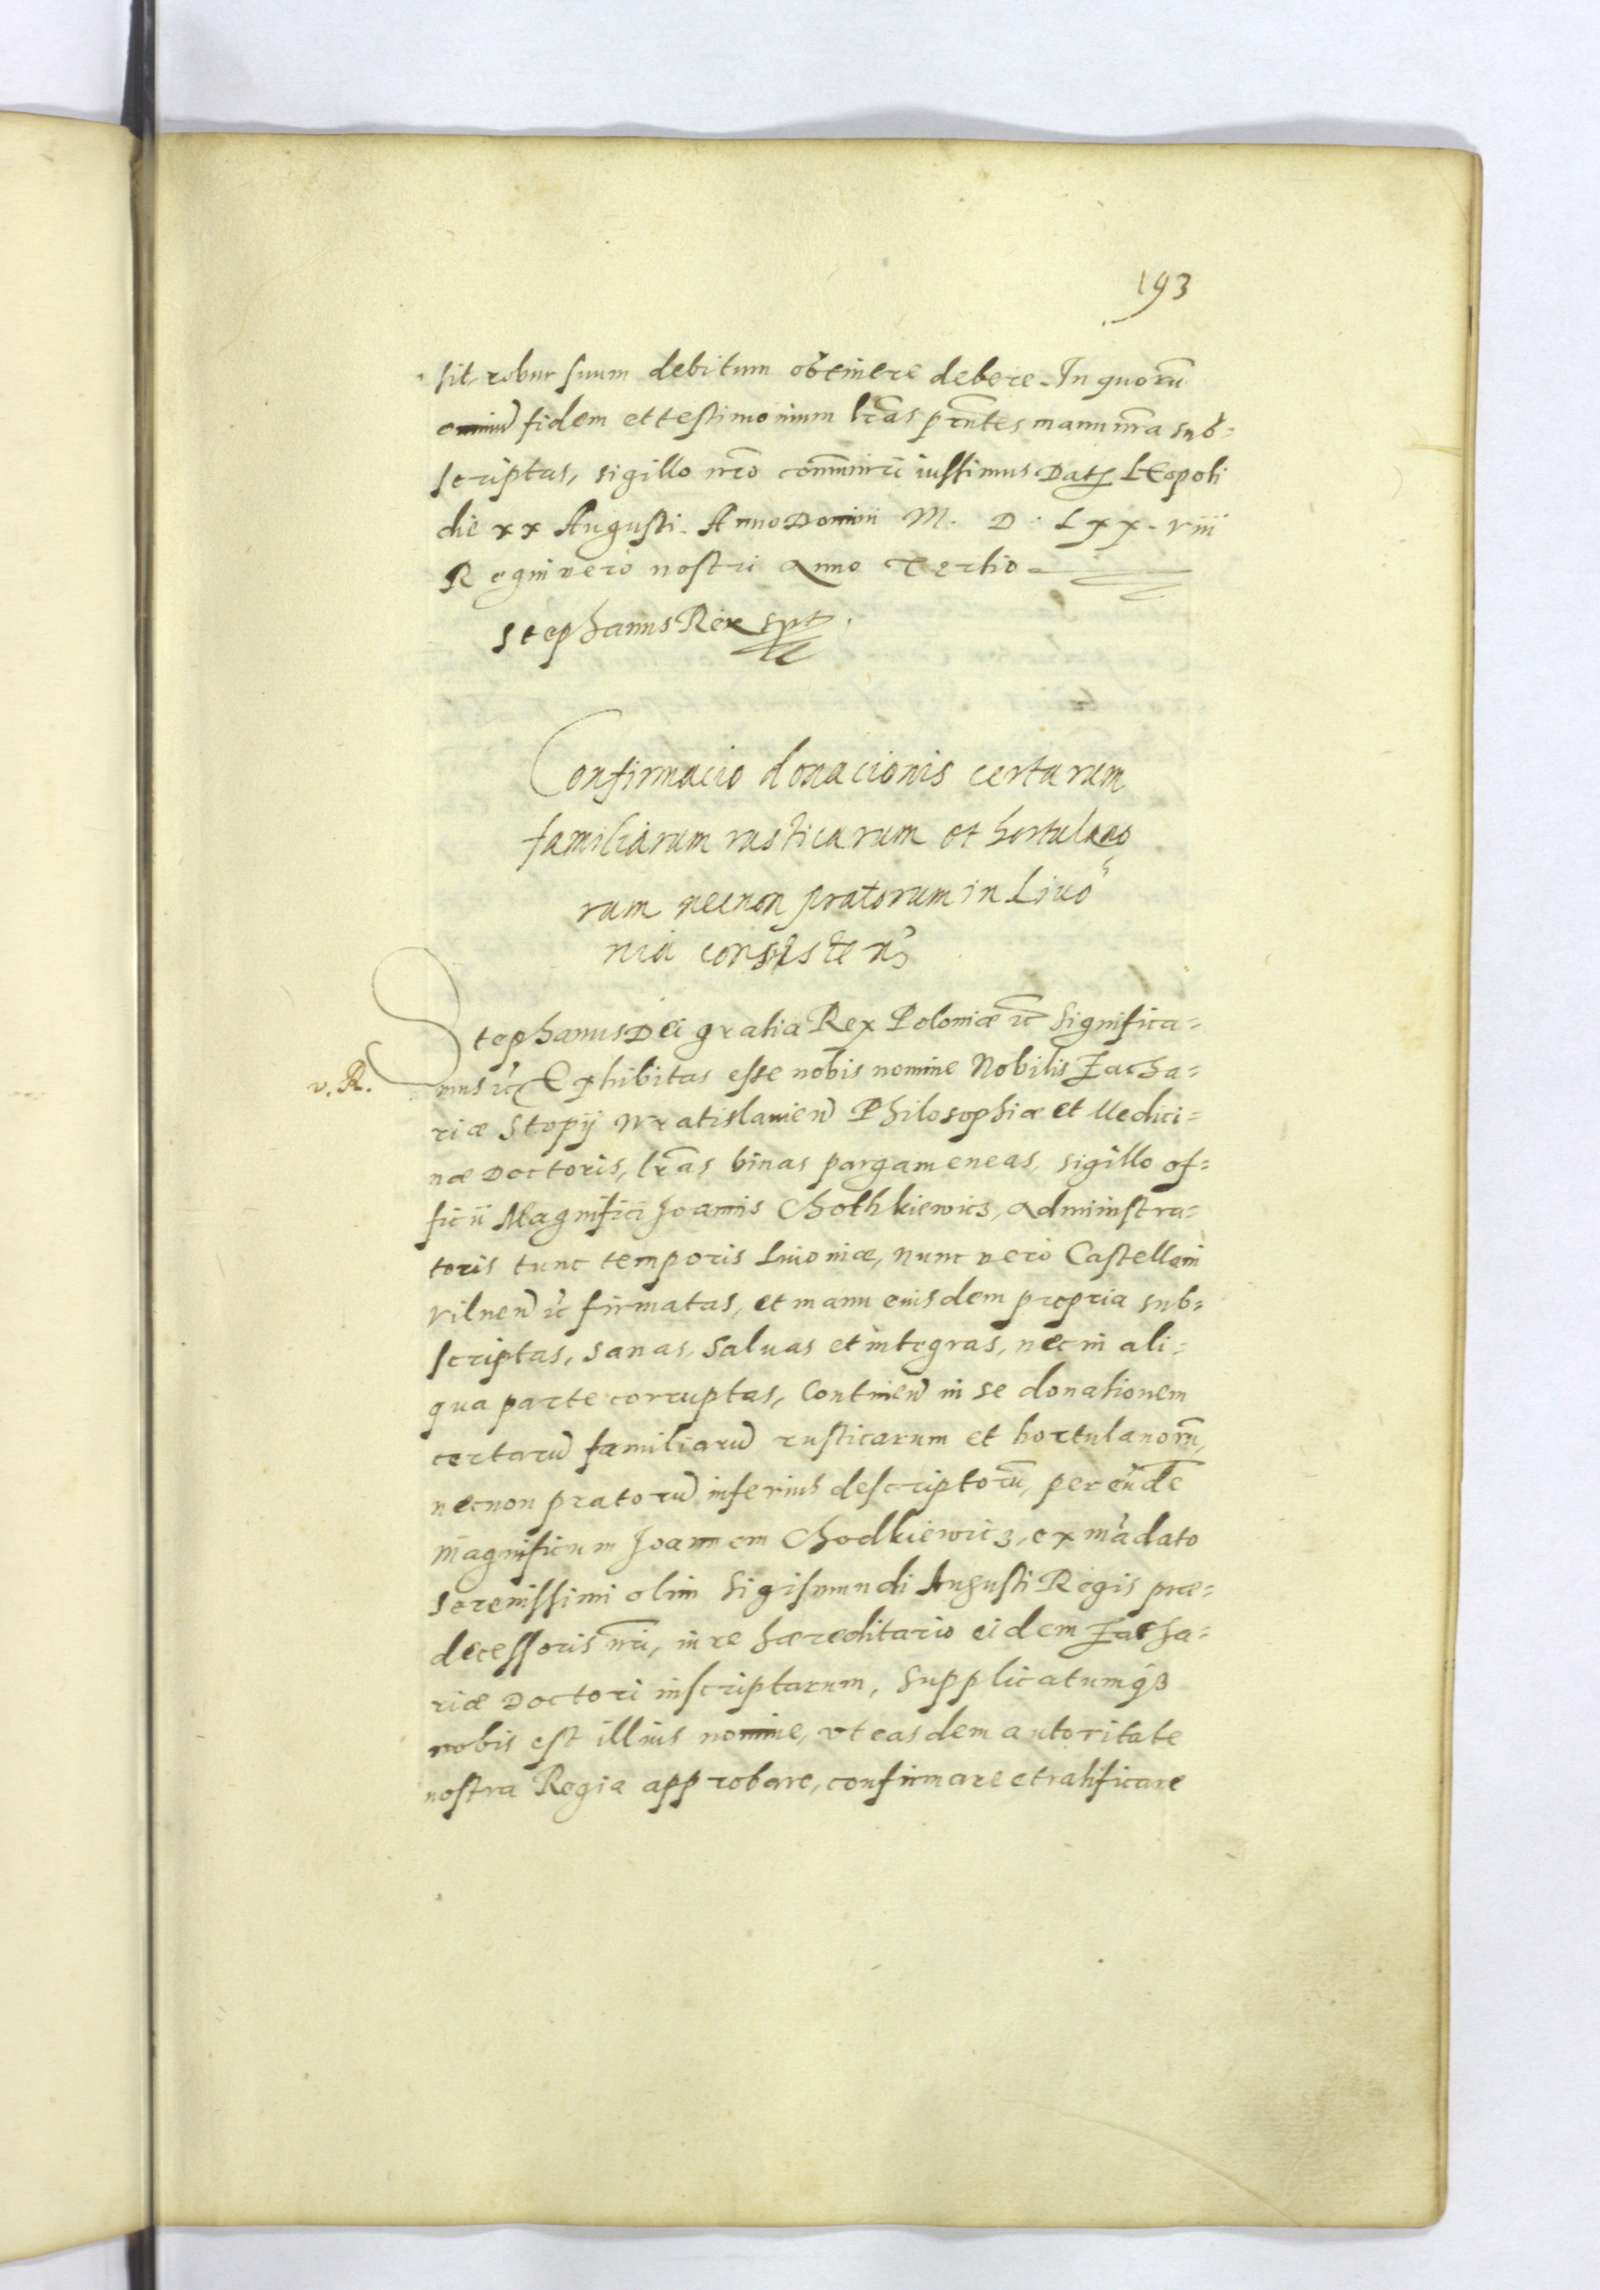 193
sit robur suum debitum obtinere debere. In quorũ
omniũ fidem et testimonium lr̃as pñtes manu nr̃a sub=
scriptas, sigillo nr̃o com̃uniri iussimus. Dat. Leopoli
die xx Augusti. Anno Domini M. D. Lxx. viii
Regni vero nostri Anno Tertio
Stephanus Rex spt.
Confirmacio donacionis certarum
familiarum rusticarum et hortulano
rum necnon pratorum in Livo"
nia consisteñ
Stephanus Dei gratia Rex Poloniæ etc̃ Significa=
v. R.
mus etc̃ Exhibitas esse nobis nomine Nobilis Zacha=
riæ Stopij Wratislavieñ Philosophiæ et Medici=
næ Doctoris, lr̃as binas pargameneas, sigillo of=
ficii Magnifici Joannis Chothkiewics, Administra=
toris tunc temporis Livoniæ, nunc vero Castellani
vilneñ etc̃ firmatas, et manu eiusdem propria sub=
scriptas, sanas, salvas et integras, nec in ali=
qua parte corruptas, Continẽ in se donationem
certarũ familiarũ rusticarum et hortulanorũ,
necnon pratorũ inferius descriptorũ, per eũdẽ
Magnificum Joannem Chodkiewicz, ex mãdato
Serenissimi olim Sigismundi Augusti Regis præ=
decessoris nr̃i, in re hæreditario eidem Zacha=
riæ Doctori inscriptarum, Supplicatumqȝ
nobis est illius nomine, vt easdem autoritate
nostra Regia approbare, confirmare et ratificare